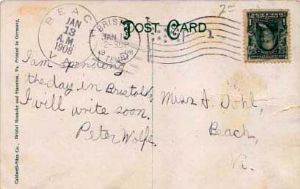 BEACH
JAN
13
A.M
1908
BRISTOL
JAN 1
TENN
POST CARD
I am spending
the day in Bristol
I will write soon.
Peter Wolfe.
Miss A. Dohl,
Beach,
Va.
Caldwell-Sites Co., Bristol Roanoke and Staunton, Va. Printed in Germany.